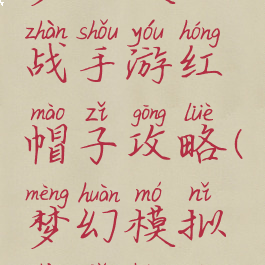 zhàn shǒu yóu hóng
战手游红
mào zǐ gōng lüè
帽子攻略(
mèng huàn mó nǐ
梦幻模拟